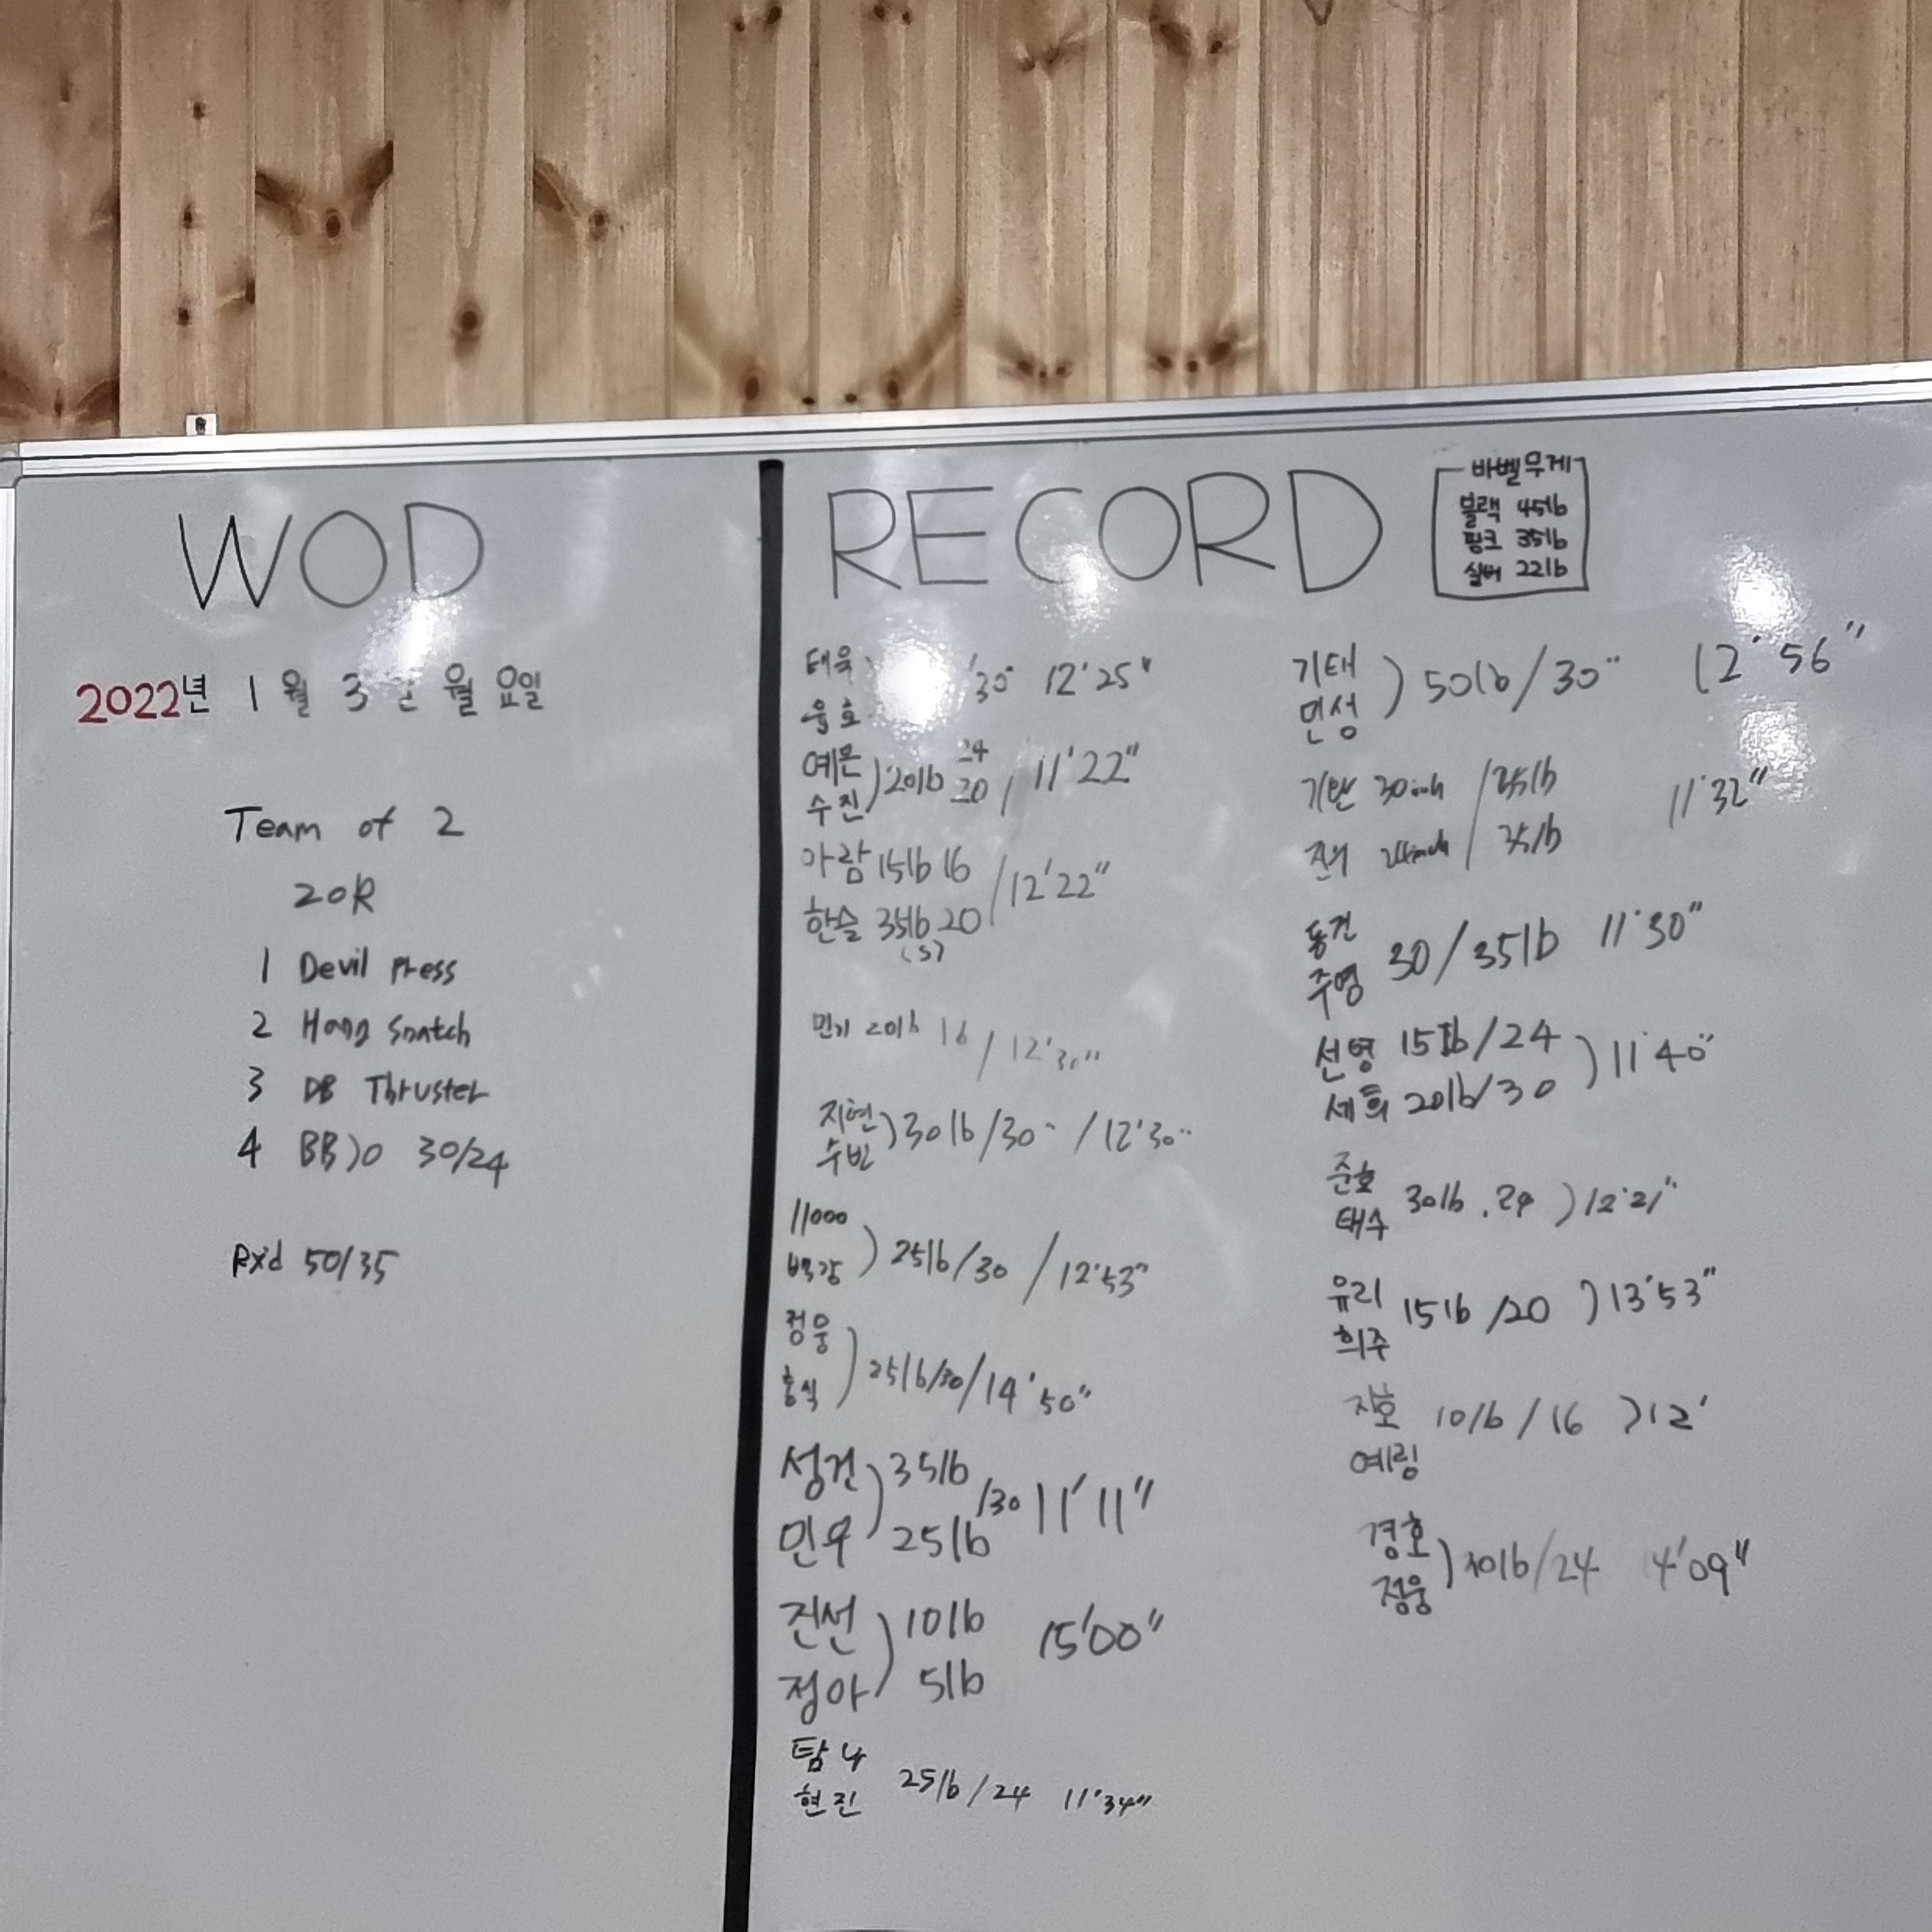 WOD
2022년 1월 3일 월요일
Team of 2
20R
1 Devil press
2 Hang Snatch
3 DB Thruster
4 BBJO 30/24
Rxd 50/35
RECORD
바벨무게
블랙 45lb
핑크 35lb
실버 22lb
태욱
웅호
30" 12'25"
예은
수진
20lb 24 20 / 11'22"
아람 15lb 16
한슬 35lb 20
(S)
/ 12'22"
민기 20lb 16 / 12'30"
지현
수빈
) 30lb/30" / 12'30"
11000
) 25lb/30 / 12'53"
정웅
홍식
) 25lb/30/14'50"
성건
민우
) 35lb
25lb
/30 11'11"
진선
정아
) 10lb
5lb
15'00"
탐나
현진
25lb/24 11'34"
기태
민성
) 50lb/30" 12'56"
기반 30inch / 35lb
24inch / 35lb
11'32"
동건
주영
30/35lb 11'30"
선영 15lb/24
세희 20lb/30
) 11'40"
준호
태수
30lb . 24 ) 12'21"
유리
희주
15lb /20 ) 13'53"
지호
예림
10lb / 16 ) 12'
경호
정웅
) lb/24 14'09"